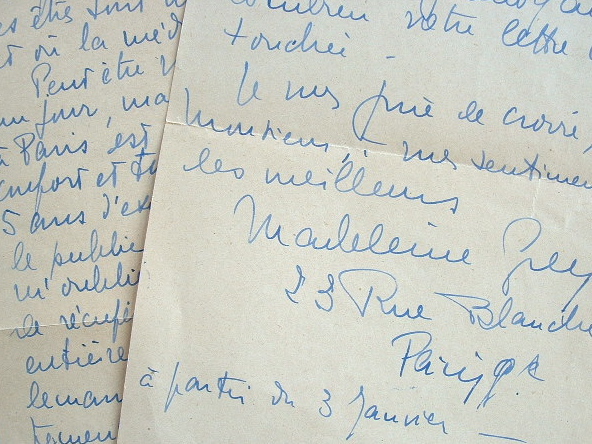 es êtes tout
et où la méd
Peut être
un jour, ma
à Paris est
confort et
5 ans d'ex
le public
m'oublie
se récupé
entière
leman
combien votre lettre
touchée -
Je vous prie de croire,
Monsieur, à mes sentimen
les meilleurs
Madeleine Grey
23 Rue Blanche
Paris 9e
à partir du 3 Janvier —